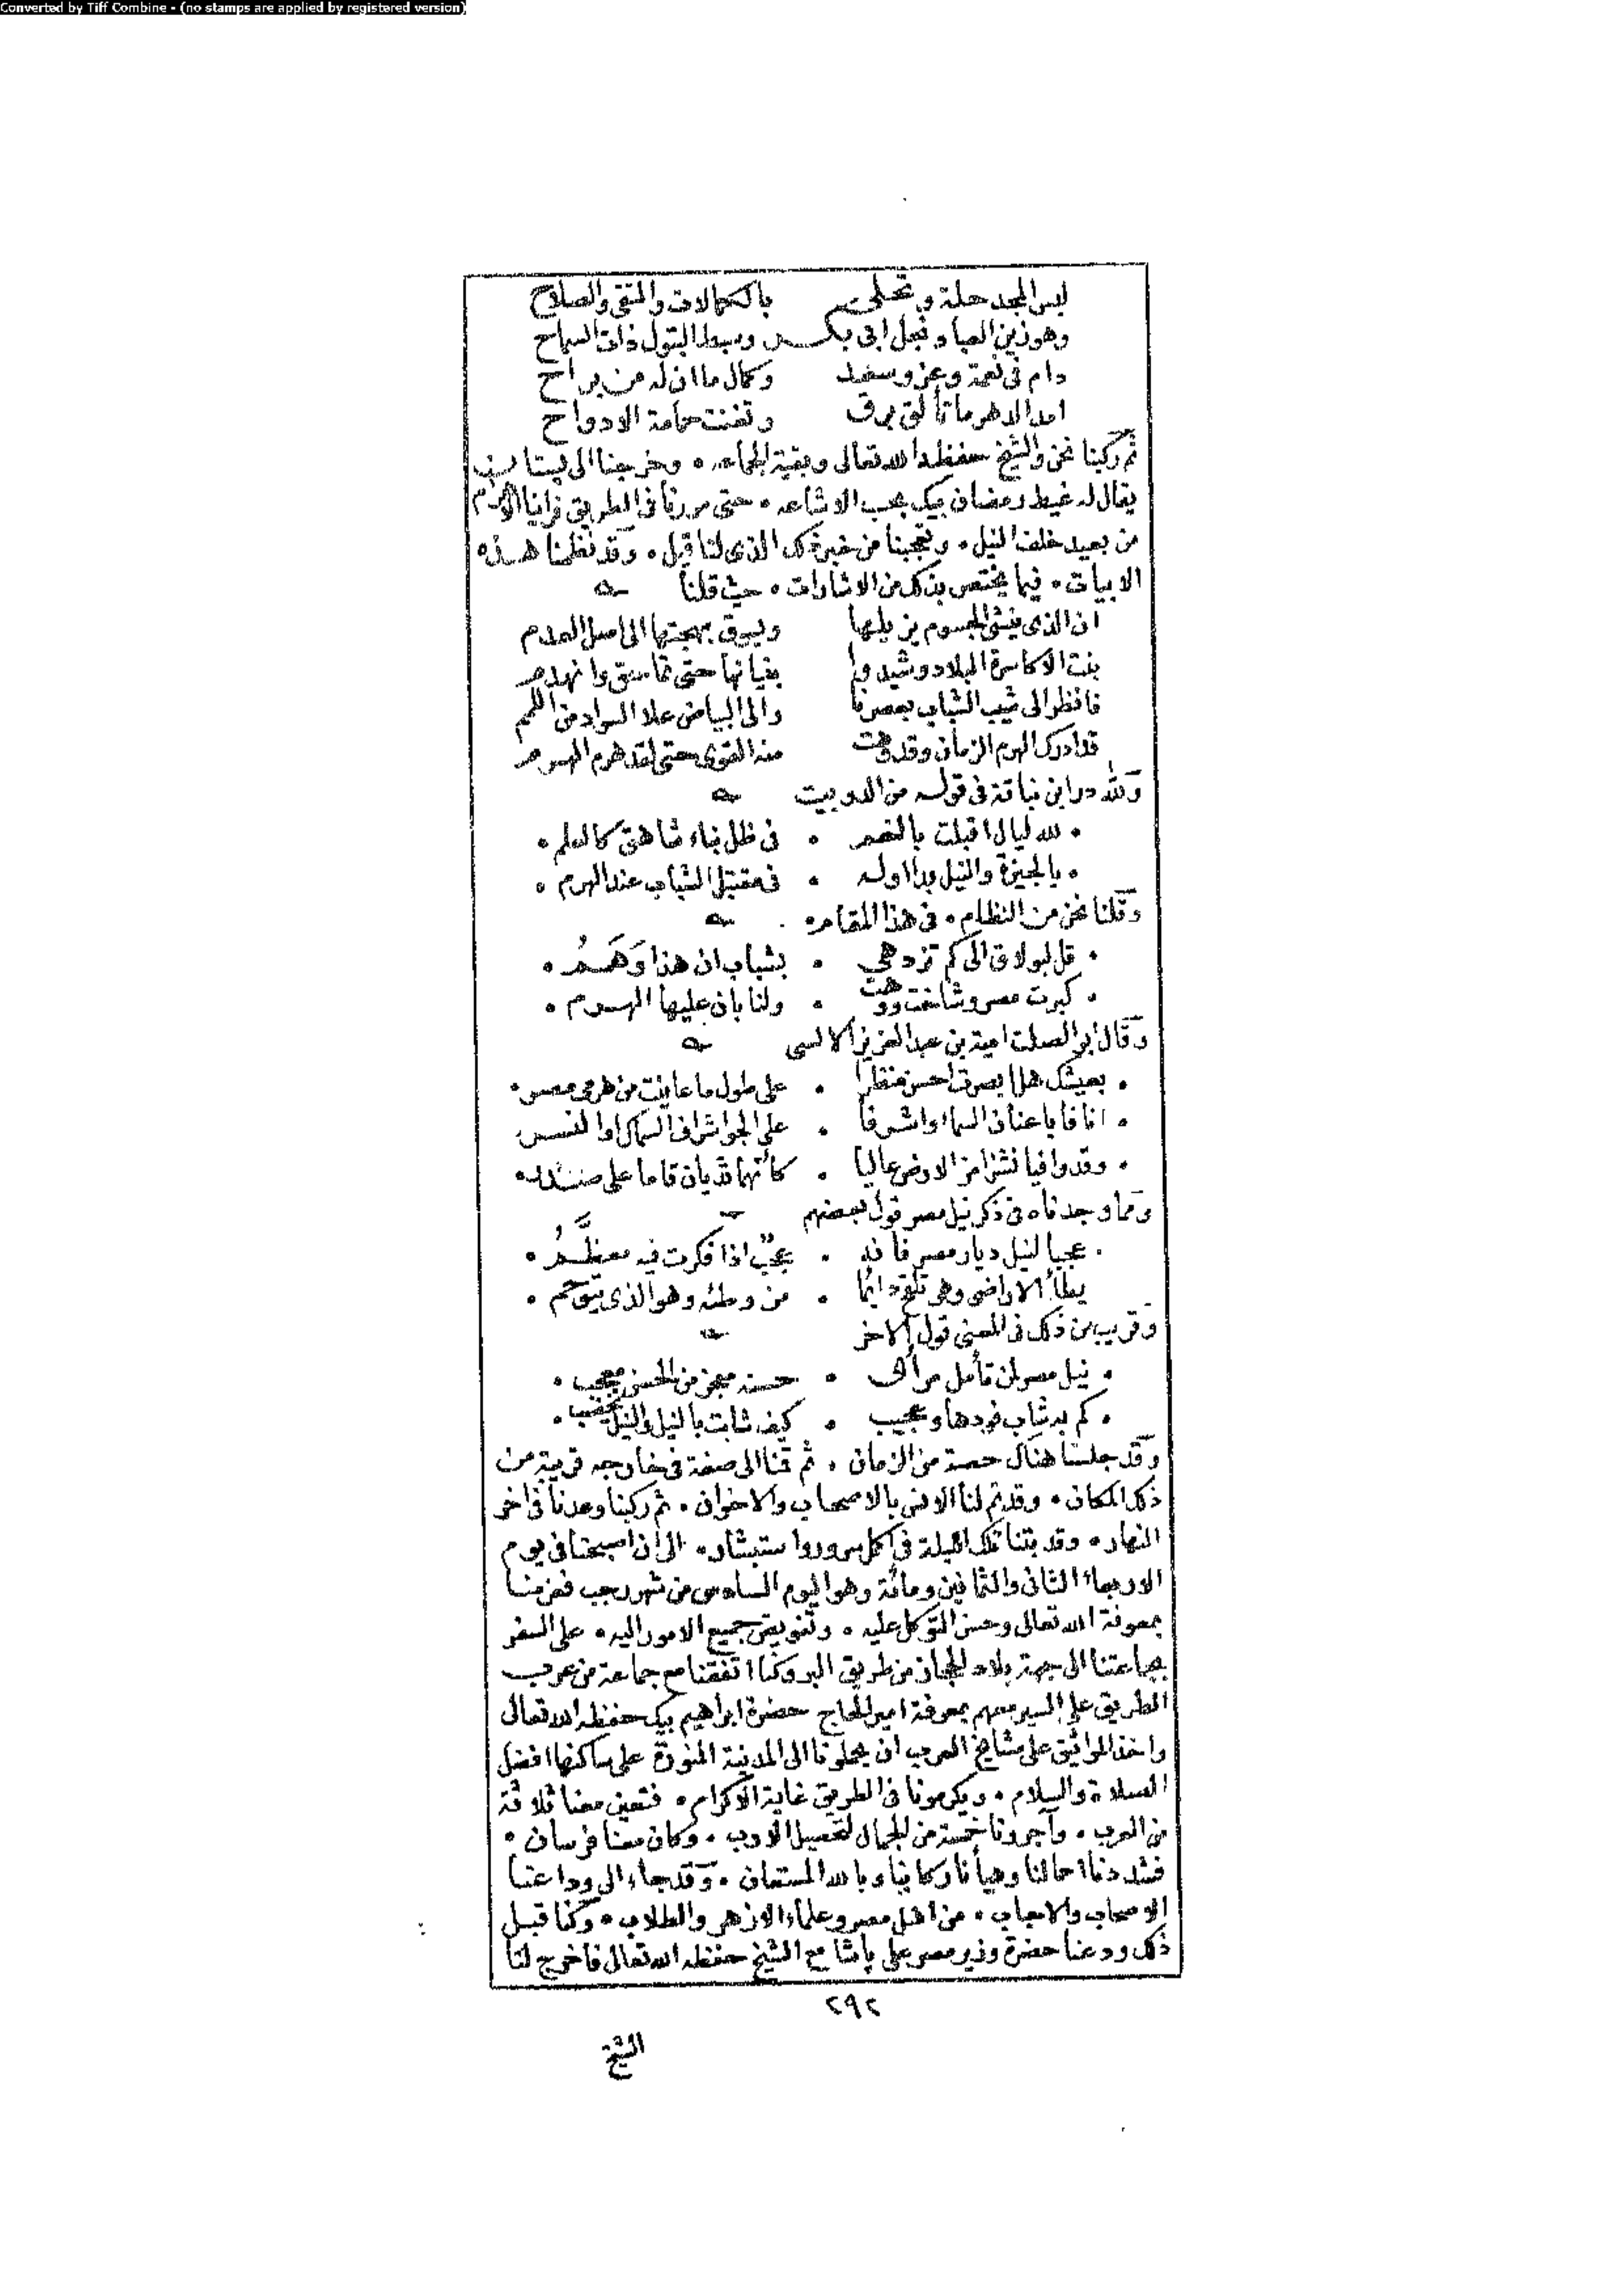 Converted by Tiff Combine - (no stamps are applied by registered version)
لبس المجد حلة وتحلى بالكمالات والتقى والصلاح
وهو زين العباد نجل ابى بكر وسبط البتول ذات السماح
دام فى نعمة وعز وسعد وكمال ما ان له من براح
امد الدهر ما تألق برق وتغنت حمامة الادواح
ثم ركبنا نحن والشيخ حفظه الله تعالى وبقية الجماعه • وخرجنا الى بستان
يقال له غيط رمضان بيك بحب الاشاعه • حتى مررنا فى الطريق فراينا الاهرام
من بعيد خلف النيل • وتعجبنا من خبر ذلك الذى لنا قيل • وقد نظمنا هذه
الابيات • فيما يختص بذلك من الاشارات • حيث قلنا
ان الذى ينشى الجسوم يزيلها ويسوق بهجتها الى اصل العدم
بنت الاكاسرة البلاد وشيدوا بنيانها حتى تماسق وانهدم
فانظر الى شيب الشباب بعصرنا والى البياض علا السواد من اللمم
قد ادرك الهرم الزمان وقد وهت منه القوى حتى لقد هرم الهرم
ولله در ابن نباتة فى قوله من الدوبيت
• لله ليال اقبلت بالنعم • فى ظل بناء شاهق كالعلم •
• بالجيزة والنيل بدا اوله • فى مقتبل الشباب عند الهرم •
وقلنا نحن من النظام • فى هذا المقام •
• قل لبولاق الى كم تزدهى • بشباب ان هذا وَهَمُ •
• كبرت مصر وشاخت ووهت • ولنا بان عليها الهرم •
وقال ابو الصلت امية بن عبد العزيز الالسى
• بعيشك هل ابصرت احسن منظرا • على طول ما عاينت من هرمى مصر •
• انافا باعنان السماء واشرفا • على الجو اشراف السماك او النسر
• وقد وافيا نشزا من الارض عاليا • كأنهما ثديان قاما على صدر •
ومما وجدناه فى ذكر نيل مصر قول بعضهم
• عجبا لنيل ديار مصر فانه • عجبٌ اذا فكرت فيه معظَّمُ •
يطأ الاراضى وهى تلقح دائما • من وطئه وهو الذى يتوحم •
وقريب من ذلك فى المعنى قول الاخر
• نيل مصر لمن تأمل مرأى • حسنه معجز من الحسن معجب •
• كم به شاب فودها وعجيب • كيف شابت بالنيل والنيل يخضب •
وقد جلسنا هناك حصة من الزمان • ثم قمنا الى صفة فى خارجه قريبة من
ذلك المكان • وقد تم لنا الانس بالاصحاب والاخوان • ثم ركبنا وعدنا فى اخر
النهار • وقد بتنا تلك الليلة فى اكمل سرور واستبشار • الى ان اصبحنا فى يوم
الاربعاء الثانى والثمانين ومائة وهو اليوم السادس من شهر رجب فعزمنا
بمعونة الله تعالى وحسن التوكل عليه • وتفويض جميع الامور اليه • على السفر
بجماعتنا الى جهة بلاد الحجاز من طريق البر وكنا اتفقنا مع جماعة من عرب
الطريق على السير معهم بمعرفة امير الحاج حضرة ابراهيم بيك حفظه الله تعالى
واخذ المواثيق على مشايخ العرب ان يحملونا الى المدينة المنورة على ساكنها افضل
الصلاة والسلام • ويكرمونا فى الطريق غاية الاكرام • فتعين معنا ثلاثة
من العرب • وآجرونا خمسة من الجمال لتحصيل الارب • وكان معنا فرسان •
فشددنا احمالنا وهيأنا ركابنا وبالله المستعان • وقد جاء الى وداعنا
الاصحاب والاحباب • من اهل مصر وعلماء الازهر والطلاب • وكنا قبل
ذلك ودعنا حضرة وزير مصر على پاشا مع الشيخ حفظه الله تعالى فاخرج لنا
٢٩٢
الشيخ